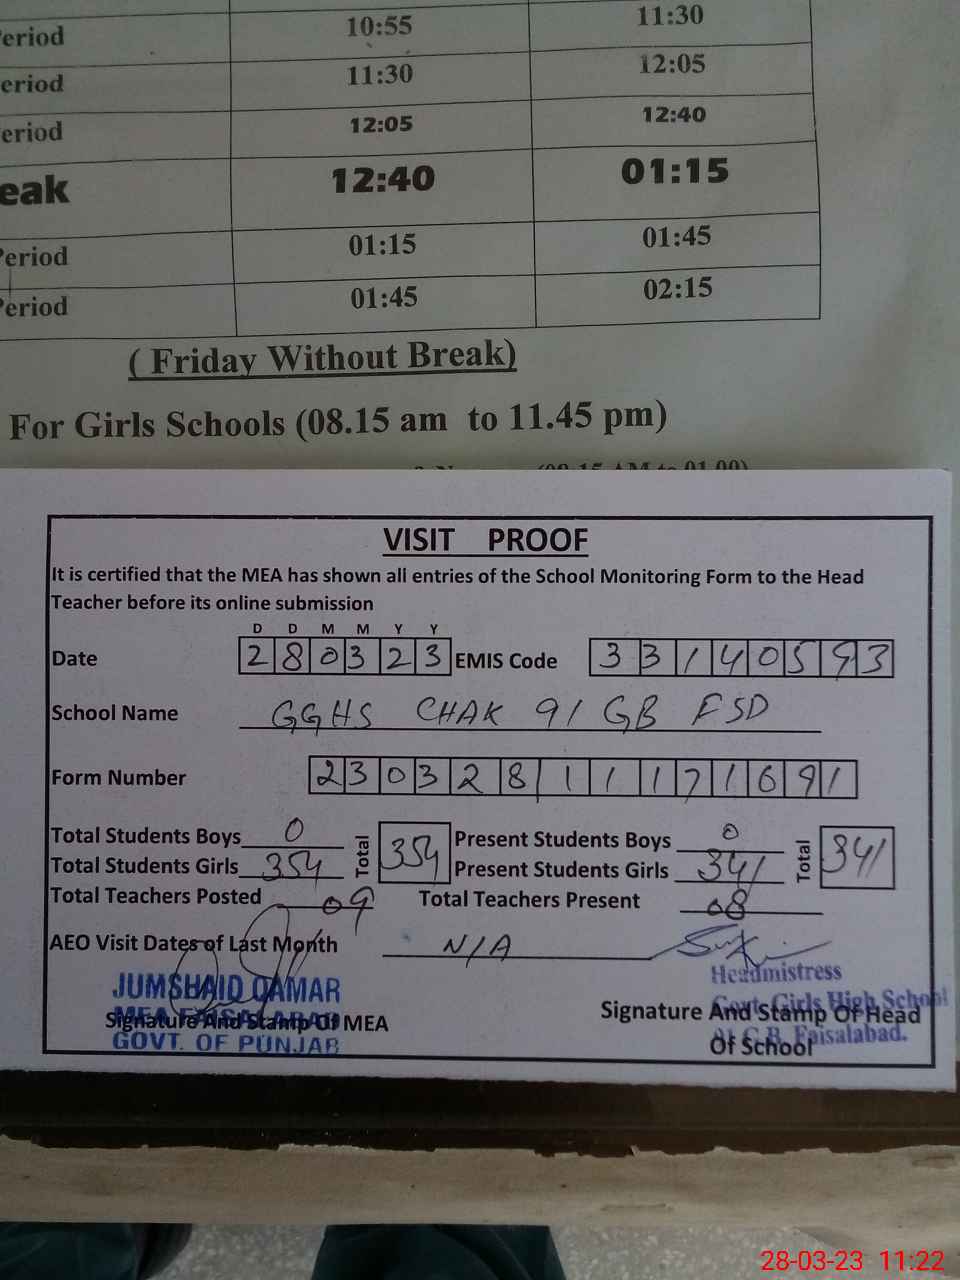 eriod 10:55 11:30
eriod 11:30 12:05
eriod 12:05 12:40
eak 12:40 01:15
Period 01:15 01:45
Period 01:45 02:15
( Friday Without Break)
For Girls Schools (08.15 am to 11.45 pm)
(08.15 AM to 01.00)
VISIT PROOF
It is certified that the MEA has shown all entries of the School Monitoring Form to the Head
Teacher before its online submission
D D M M Y Y
Date 2 8 0 3 2 3 EMIS Code 3 3 1 4 0 5 9 3
School Name GGHS CHAK 91 GB FSD
Form Number 2 3 0 3 2 8 1 1 1 7 1 6 9 1
Total Students Boys 0 Total 354 Present Students Boys 0 Total 341
Total Students Girls 354 Present Students Girls 341
Total Teachers Posted 09 Total Teachers Present 08
AEO Visit Dates of Last Month N/A
JUMSHAID QAMAR
MEA FAISALABAD
GOVT. OF PUNJAB
Signature And Stamp Of MEA
Headmistress
Govt. Girls High School
91 G.B. Faisalabad.
Signature And Stamp Of Head
Of School
28-03-23 11:22